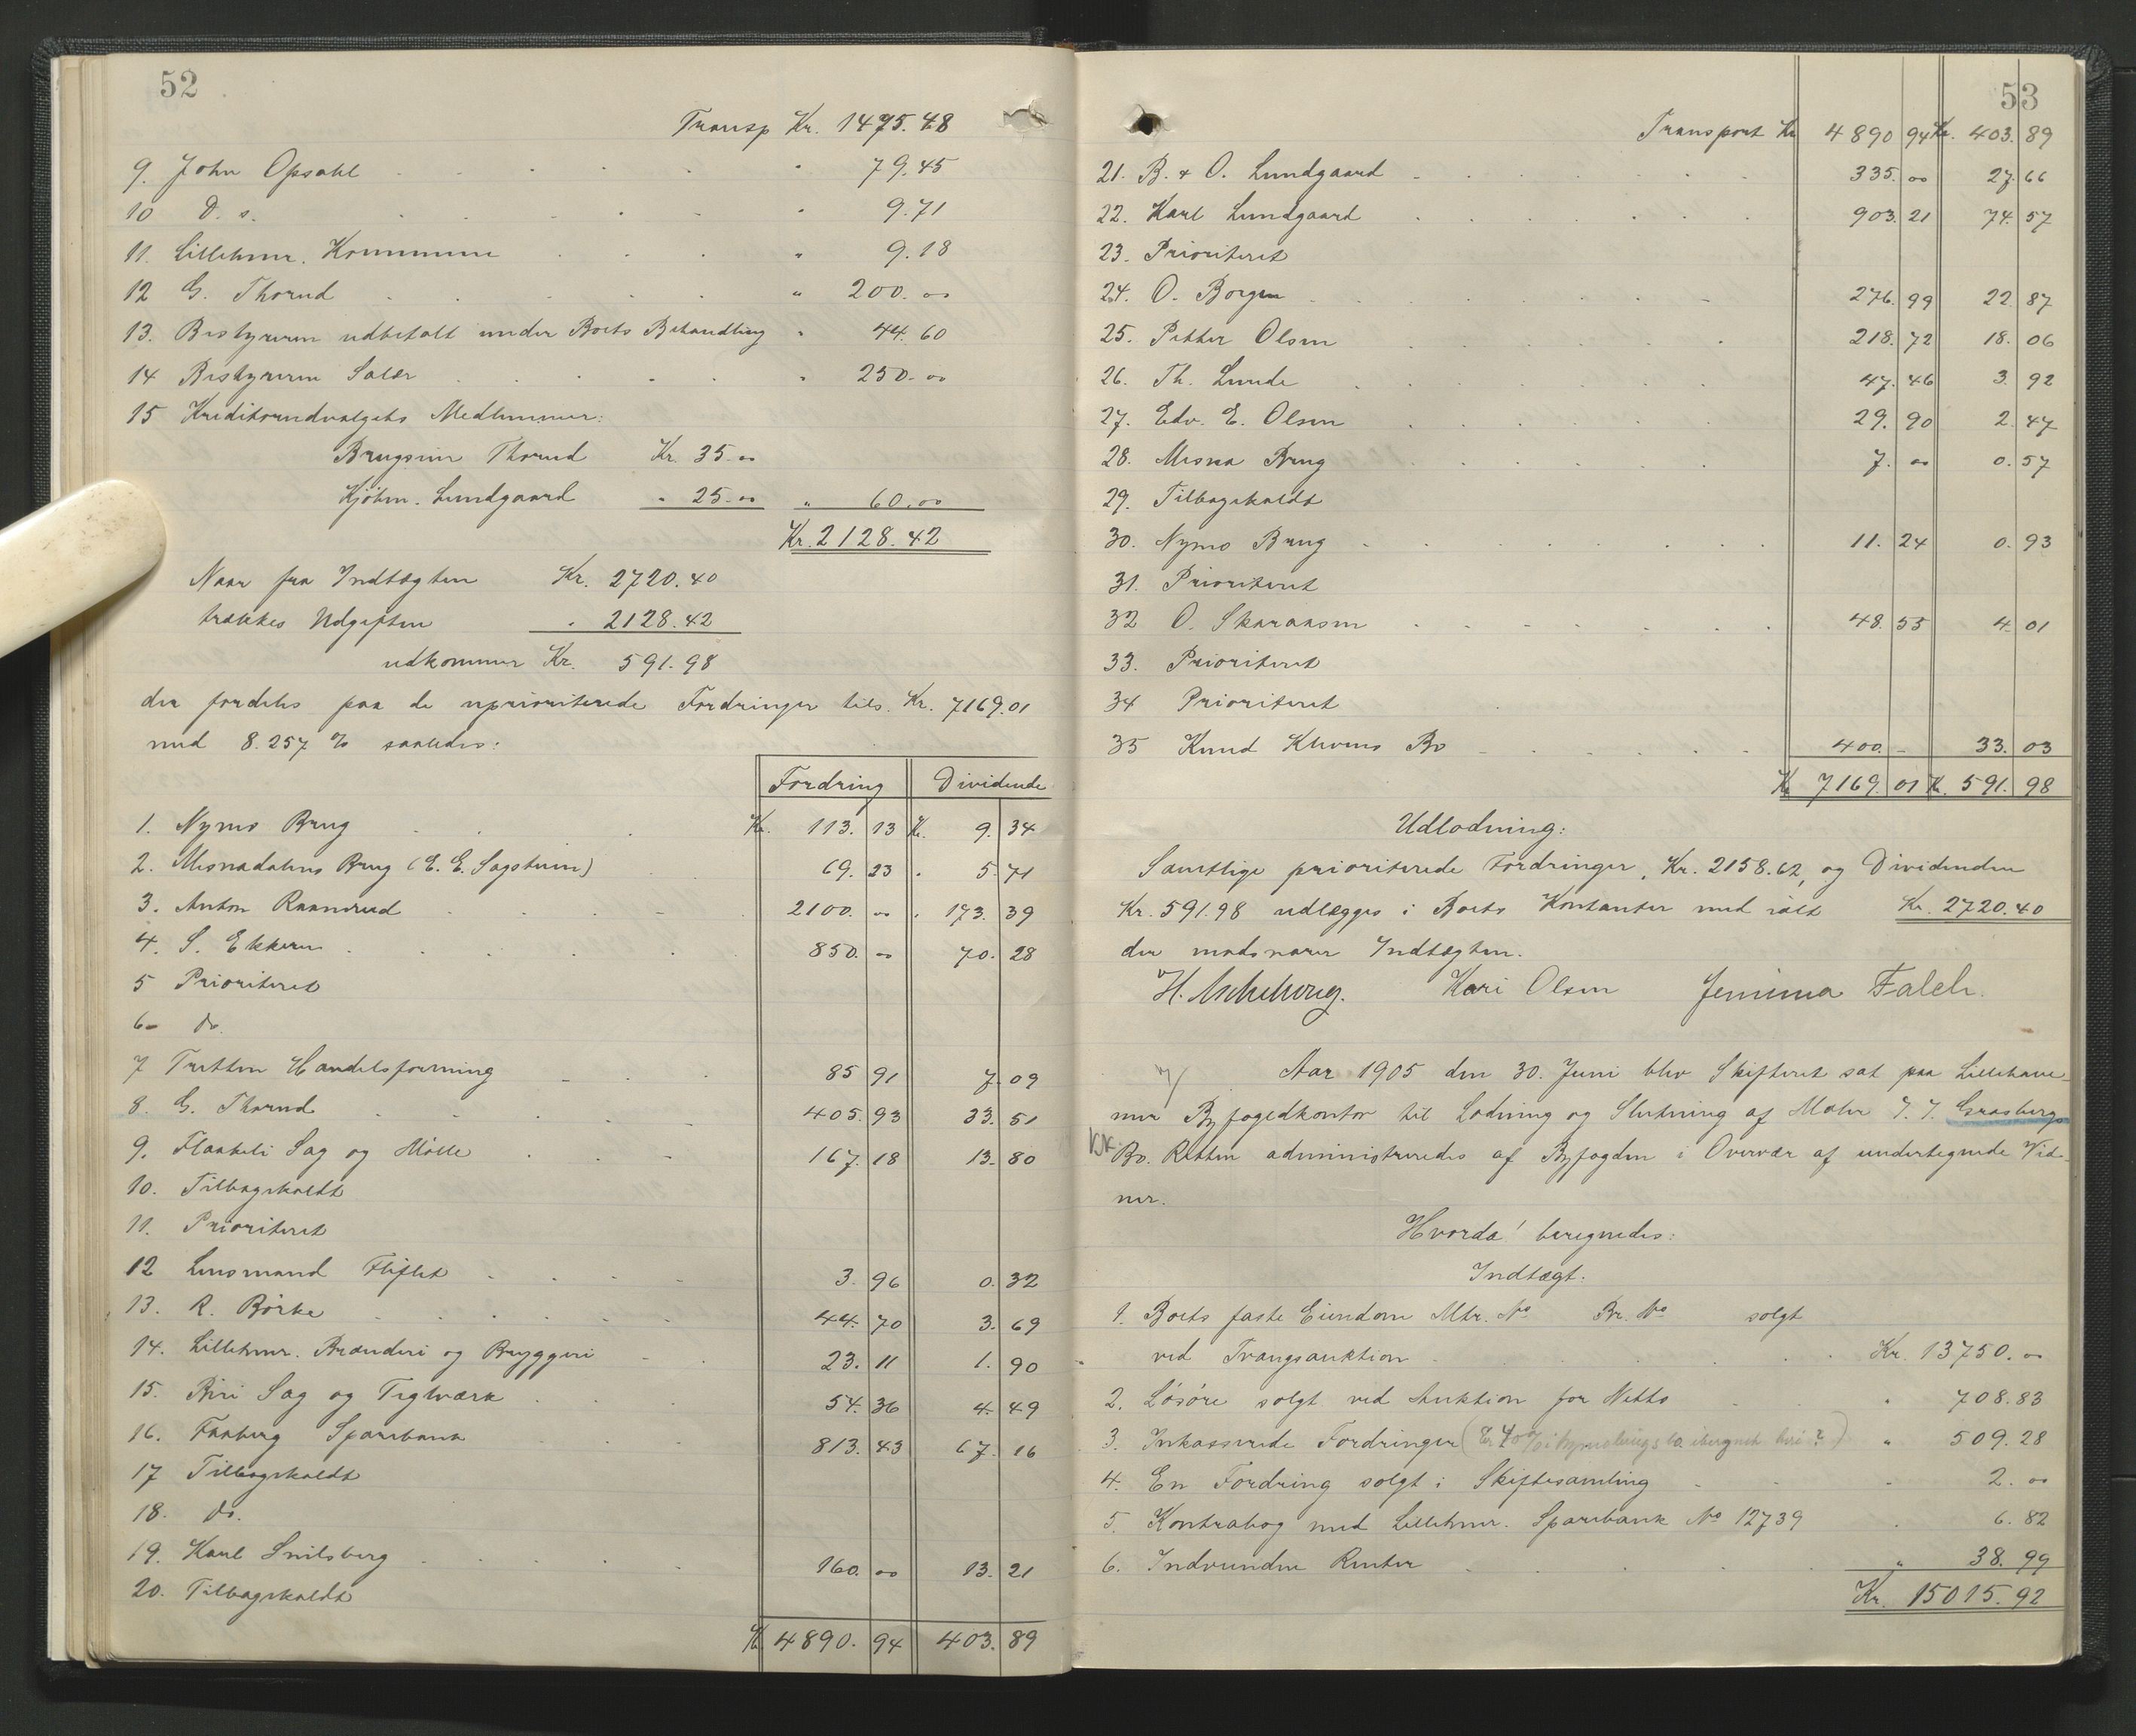 52
Transp Kr. 1475.48
9. John Opsahl " 79.45
10 D. s. " 9.71
11. Lillehmr. Kommune " 9.18
12 G. Thorud " 200.00
13. Bestyreren udbetalt under Boets Behandling " 44.60
14 Bestyreren Salær " 250.00
15 Kreditorudvalgets Medlemmer:
Brugseier Thorud Kr. 35.00
Kjøbm. Lundgaard " 25.00 " 60.00
Kr. 2128.42
Naar fra Indtægten Kr. 2720.40
trækkes Udgiften " 2128.42
udkommer Kr. 591.98
der fordeles paa de uprioriterede Fordringer tils. Kr. 7169.01
med 8.257 % saaledes:
Fordring Dividende
1. Nymo Brug Kr. 113.13 Kr. 9.34
2. Mesnadalens Brug (E. E. Sagstuen) 69.23 " 5.71
3. Anton Raanerud 2100.00 " 173.39
4. S. Ekkern 850.00 70.28
5 Prioriteret
6 do.
7 Tretten Handelsforening 85 91 7.09
8. G. Thorud 405.93 33.51
9. Flaakeli Sag og Mølle 167.18 13.80
10. Tilbagekaldt
11. Prioriteret
12 Lensmand Fliflet 3.96 0.32
13. R. Børke 44.70 3.69
14. Lillehmr. Brænderi og Bryggeri 23.11 1.90
15. Biri Sag og Teglværk 54.36 4.49
16. Faaberg Sparebank 813.43 67.16
17 Tilbagekaldt
18. do.
19. Karl Smilsberg 160.00 13.21
20. Tilbagekaldt
Kr. 4890.94 403.89
53
Transport Kr 4890 94 Kr. 403.89
21. B. & O. Lundgaard 335.00 27.66
22. Karl Lundgaard 903.21 74.57
23. Prioriteret
24. O. Borgen 276.99 22.87
25. Petter Olsen 218.72 18.06
26. Th. Lunde 47.46 3.92
27. Edv. E. Olsen 29.90 2.47
28. Mesna Brug 7.00 0.57
29. Tilbagekaldt
30. Nymo Brug 11.24 0.93
31. Prioriteret
32 O. Skaraasen 48.55 4.01
33. Prioriteret
34 Prioriteret
35 Knud Klevens Bo 400.- 33.03
Kr 7169.01 Kr. 591.98
Udlodning:
Samtlige prioriterede Fordringer, Kr. 2158.62, og Dividenden
Kr. 591.98 udlægges i Boets Kontanter med ialt Kr. 2720.40
der modsvarer Indtægten.
H. Aschehoug. Kari Olsen Jemima Falch.
Aar 1905 den 30. Juni blev Skifteret sat paa Lilleham-
mer Byfogedkontor til Lodning og Slutning af Maler J. J. Grasbergs
Bo. Retten administreredes af Byfogden i Overvær af undertegnede Vid-
ner.
Hvorda! beregnedes:
Indtægt:
1. Boets faste Eiendom Mtr. No Br. No solgt
ved Tvangsauktion Kr. 13750.00
2. Løsøre solgt ved Auktion for Netto " 708.83
3. Inkasserede Fordringer " 509.28
4. En Fordring solgt i Skiftesamling " 2.00
5. Kontrabog med Lillehmr. Sparebank No 12739 " 6.82
6. Indvundne Renter " 38.99
Kr. 15015.92